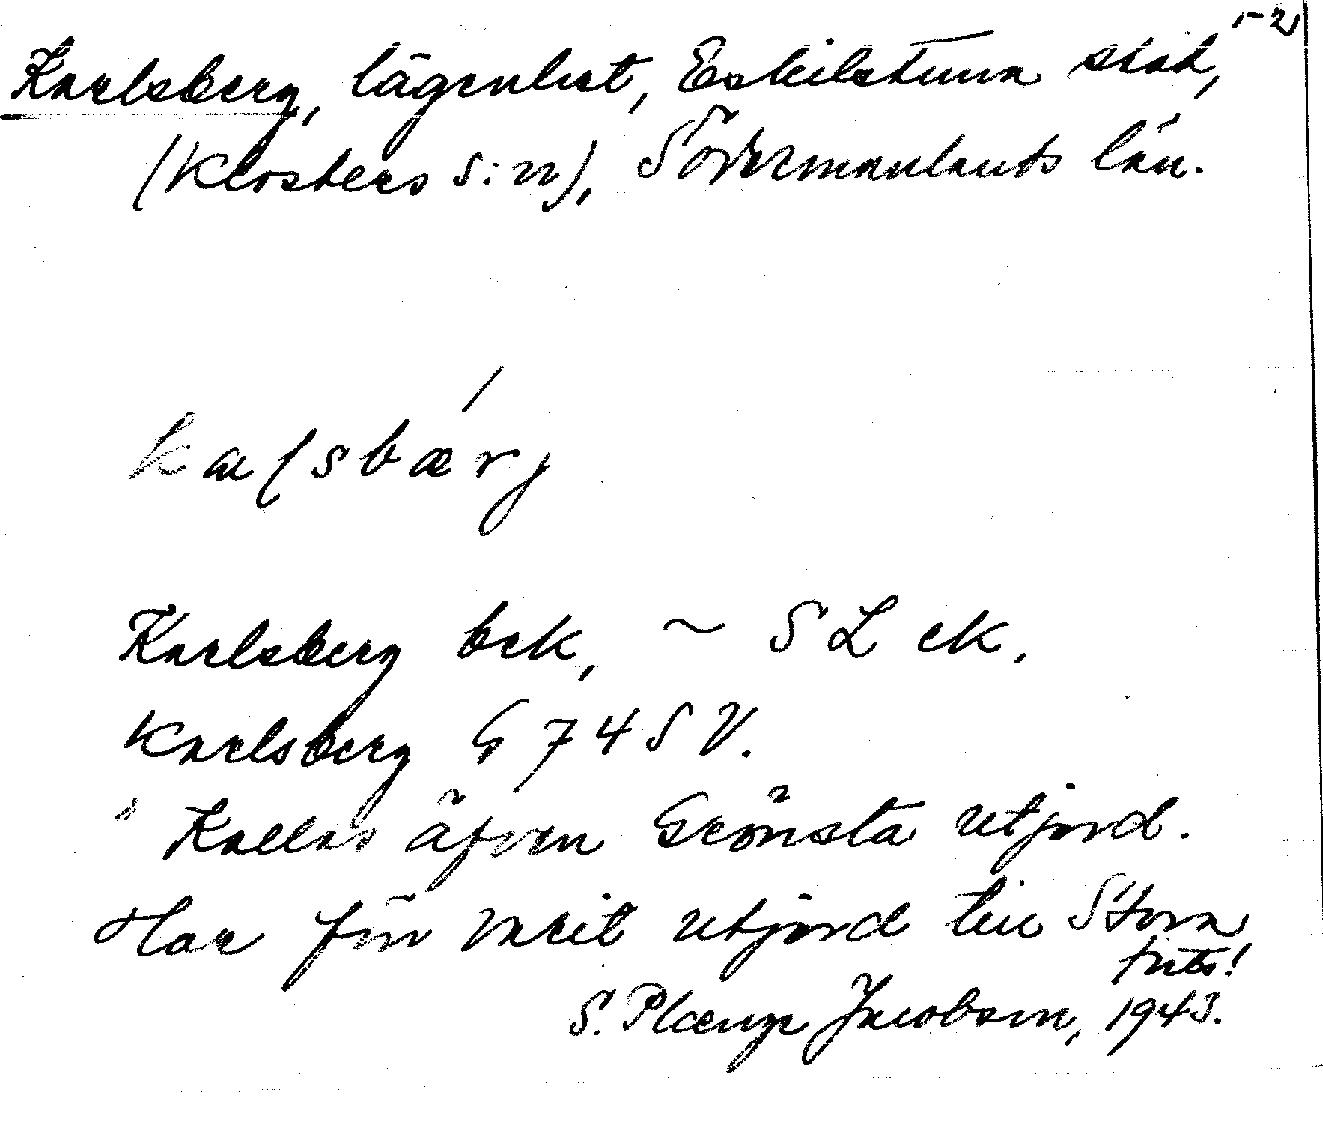 1-2,
Karlsberg, lägenhet, Eskilstuna stad,
(Klosters s:n), Södermanlands län.
kaʃsbærj
Karlsberg bek, ~ SL ek.
Karlsberg G 74 SV.
Kallas äfven Grönsta utjord.
Har förr varit utjord till Stora
forts!
S. Plænge Jacobson, 1943.